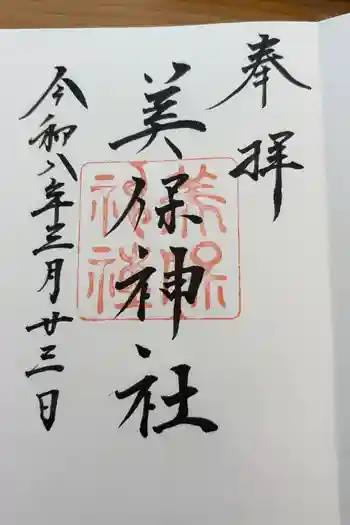 奉拝
美保神社
美保
神社
令和八年三月廿三日